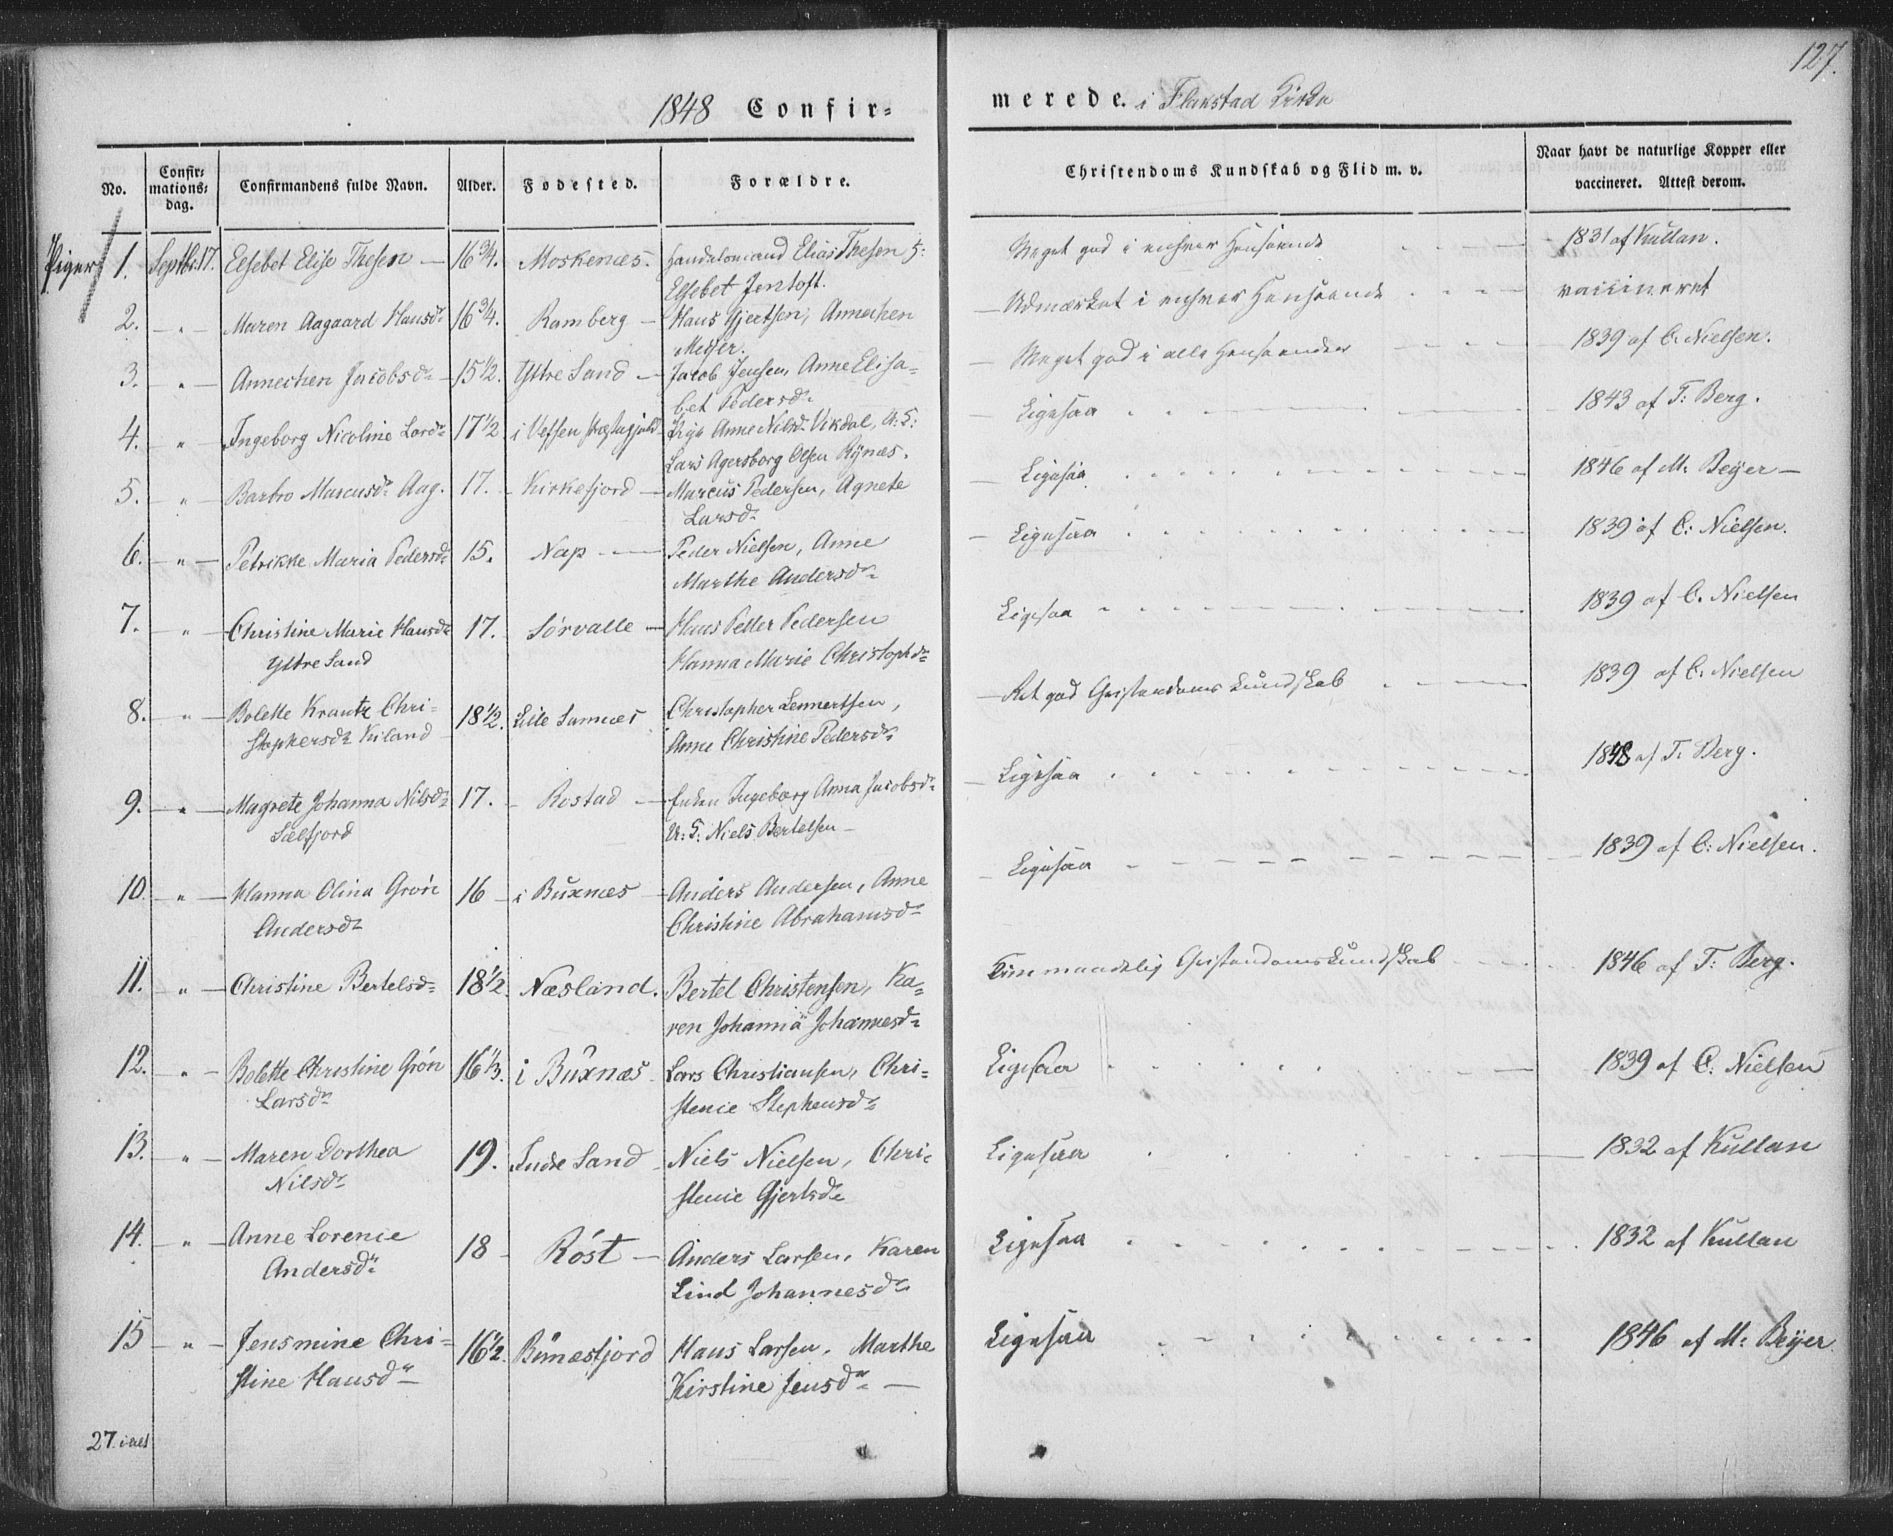 127.
1848 Confir-
merede. i Flakstad Kirke
No.
Confir-
mations-
dag.
Confirmandens fulde Navn.
Alder.
Fodested.
Forældre.
Christendoms Kundskab og Flid m. v.
Naar havt de naturlige Kopper eller
vaccineret. Attest derom.
Piger 1. Septbr. 17. Elsebet Elise Thesen — 16 3/4. Moskenæs. Handelsmand Elias Thesen H: Meget god i enhver Henseende 1831 af Kullan.
Elsebet Jentoft.
2. " Maren Aagaard Hansdr 16 3/4. Ramberg — Hans Gjertsen, Annechen Udmærket i enhver Henseende vaccineret
Meyer.
3. " Annechen Jacobsdr 15 1/2. Yttre Sand — Jacob Jensen, Anne Elisa- Meget god i alle Henseender 1839 af C. Nielsen.
bet Pedersdr
4. " Ingeborg Nicoline Larsdr 17 1/2 i Vefsen Præstegjeld Pige Anne Nilsdr Vikdal, U: H: Ligesaa 1843 af T. Berg.
Lars Agersborg Olsen Rynæs.
5. " Barbro Marcusdr Aag. 17. Kirkefjord — Marcus Pedersen, Agnete Ligesaa 1846 af M. Beyer —
Larsdr
6. " Petrikke Maria Pedersdr 15. Nap — Peder Nielsen, Anne Ligesaa 1839 af C. Nielsen.
Marthe Andersdr
7. " Christine Marie Hansdr 17. Sørvalle — Hans Petter Pedersen Ligesaa 1839 af C. Nielsen
Yttre Sand Hanna Marie Christophdr
8. " Bolette Krantz Chri- 18 1/2. Lille Sannæs Christopher Lennertsen, Ret god Christendoms Kundskab 1839 af C. Nielsen
stophersdr Kiland Anne Christine Pedersdr
9. " Magrete Johanna Nilsdr 17. Rostad — Enken Ingeborg Anna Jacobsdr Ligesaa 1848 af T. Berg.
Sælfjord U: H: Niels Bertelsen —
10. " Hanna Olina Grøn 16 i Buxnæs Anders Andersen, Anne Ligesaa 1839 af C. Nielsen.
Andersdr Christine Abrahamsdr
11. " Christine Bertelsdr 18 1/2. Næsland. Bertel Christensen, Ka- Timmaadelig Christendomskundskab 1846 af T. Berg.
ren Johanna Johannesdr
12. " Bolette Christine Grøn 16 1/3. i Buxnæs Lars Christiansen, Chri- Ligesaa 1839 af C. Nielsen
Larsdr stenie Stephensdr
13. " Maren Dorthea 19. Indre Sand Niels Nielsen, Chri- Ligesaa 1832 af Kullan
Nilsdr stenie Gjertsdr
14. " Anne Lorenie 18 Röst — Anders Larsen, Karen Ligesaa 1832 af Kullan
Andersdr Lind Johannesdr
15 " Jensmine Chri- 16 1/2. Bunæsfjord Hans Larsen, Marthe Ligesaa 1846 af M. Beyer
stine Hansdr Kirstine Jensdr —
27. i alt